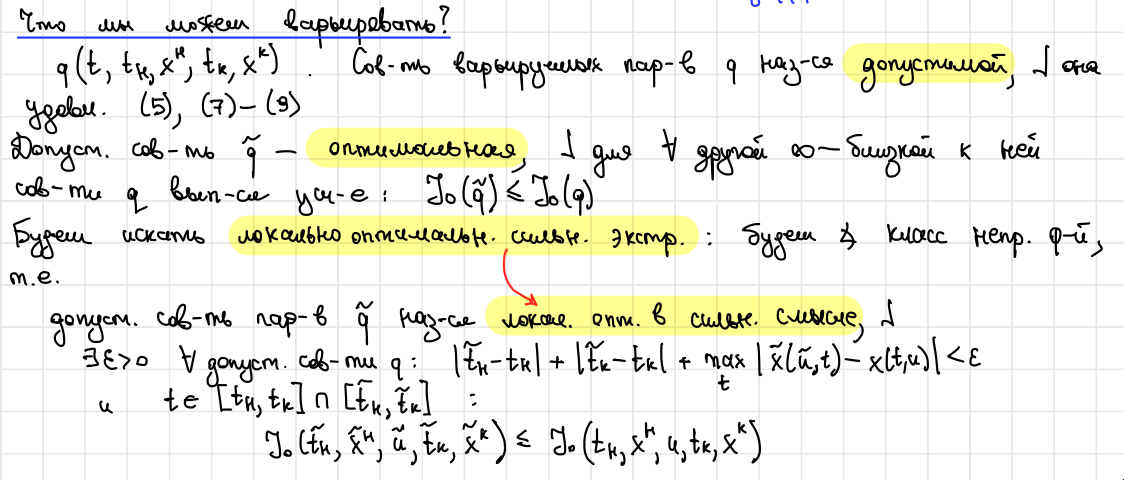 Что мы можем варьировать?
q(t, tₙ, xᴴ, tₖ, xᴷ). Сов-ть варьируемых пар-в q наз-ся допустимой, √ она
удовл. (5), (7)–(9)
Допуст. сов-ть q̃ – оптимальная, √ для ∀ другой ∞–близкой к ней
сов-ти q вып-ся усл-е: J₀(q̃) ≤ J₀(q)
Будем искать локально оптимальн. сильн. экстр.: будем класс непр. ф-й,
т.е.
допуст. сов-ть пар-в q̃ наз-ся локал. опт. в сильн. смысле, √
∃ε>0 ∀ допуст. сов-ти q: |t̃ₙ-tₙ| + |t̃ₖ-tₖ| + max |x̃(ũ,t)-x(t,u)| < ε
t
и t∈[tₙ, tₖ]∩[t̃ₙ, t̃ₖ] :
J₀(t̃ₙ, x̃ᴴ, ũ, t̃ₖ, x̃ᴷ) ≤ J₀(tₙ, xᴴ, u, tₖ, xᴷ)